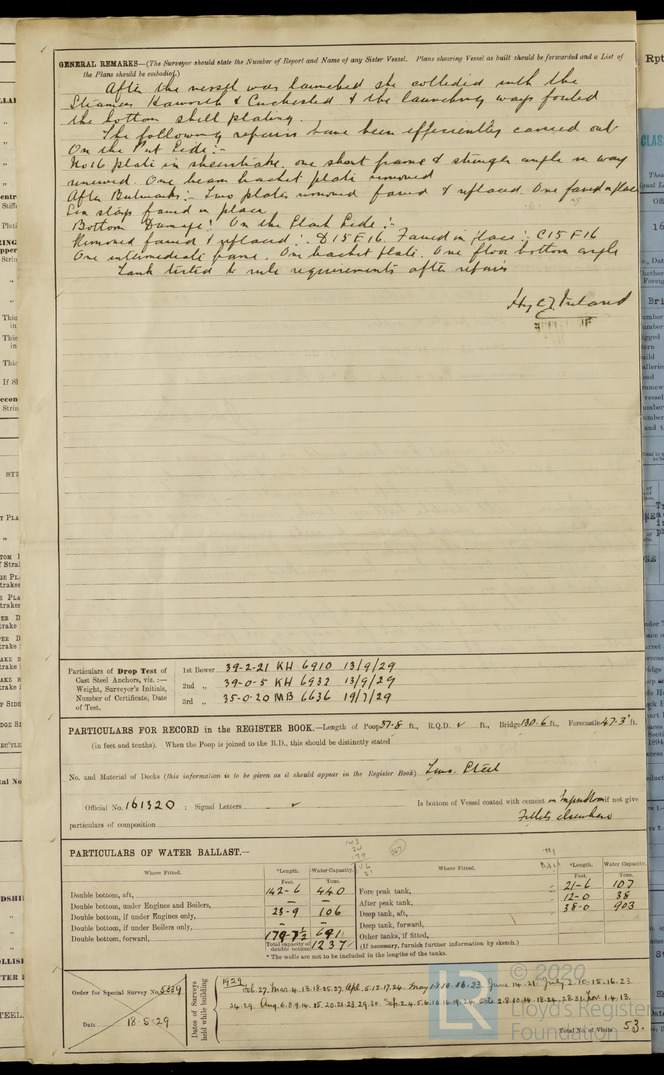 GENERAL REMARKS—(The Surveyor should state the Number of Report and Name of any Sister Vessel. Plans showing Vessel as built should be forwarded and a List of
the Plans should be embodied.)
After the vessel was launched she collided with the
Steamers & the launching ways fouled
the bottom shell plating.
The following repairs have been efficiently carried out
On the Port Side :-
No 16 plate in sheerstrake, one short frame & stringer angle in way
renewed. One beam bracket plate removed
After Bulwarks :- Two plates removed faired & replaced. One faired in place
Six stays faired in place
Bottom Damage! On the Side :-
Removed faired & replaced :- D15 E16. Faired in place :- C15 F16
One intermediate frame. One bracket plate. One floor bottom angle
Tank tested to rule requirements after repairs
Hy C. Ireland
Particulars of Drop Test of
Cast Steel Anchors, viz. :—
Weight, Surveyor's Initials,
Number of Certificate, Date
of Test.
1st Bower 39-2-21 KH 6910 13/9/29
2nd „ 39-0-5 KH 6932 13/9/29
3rd „ 35-0-20 MB 6636 19/7/29
PARTICULARS FOR RECORD in the REGISTER BOOK.—Length of Poop 37-8 ft., R.Q.D. ✓ ft., Bridge 130-6 ft., Forecastle 47-3 ft.
(in feet and tenths). When the Poop is joined to the B.D., this should be distinctly stated
No. and Material of Decks (this information is to be given as it should appear in the Register Book) Two. Steel
Official No. 161320 ; Signal Letters ✓ Is bottom of Vessel coated with cement if not give
particulars of composition Fillets elsewhere
PARTICULARS OF WATER BALLAST.—
Where Fitted. *Length. Water Capacity. Where Fitted. *Length. Water Capacity.
Feet. Tons. Feet. Tons.
Double bottom, aft, 142-6 440 Fore peak tank, 21-6 107
Double bottom, under Engines and Boilers, — — After peak tank, 12-0 38
Double bottom, if under Engines only, 23-9 106 Deep tank, aft, 38-0 903
Double bottom, if under Boilers only, — — Deep tank, forward,
Double bottom, forward, 179-7½ 691 Other tanks, if fitted,
Total capacity of double bottom 1237 (If necessary, furnish further information by sketch.)
* The wells are not to be included in the lengths of the tanks.
Order for Special Survey No. 5339
Date 18-5-29
Dates of Surveys
held while building
1929
Feb. 27. Mar. 4. 13. 18. 25. 27. Apl. 5. 12. 17. 24. May 1. 7. 10. 16. 23. June 14. 21. July 2. 10. 15. 16. 23
24. 29. Aug. 6. 8. 9. 14. 15. 20. 21. 23. 29. 30. Sep. 2. 4. 5. 6. 10. 16. 19. 24. Oct. 2. 8. 10. 14. 18. 24. 28. 31. Nov. 1. 4. 13.
Total No. of Visits 53.
LR
© 2020
Lloyd's Register
Foundation